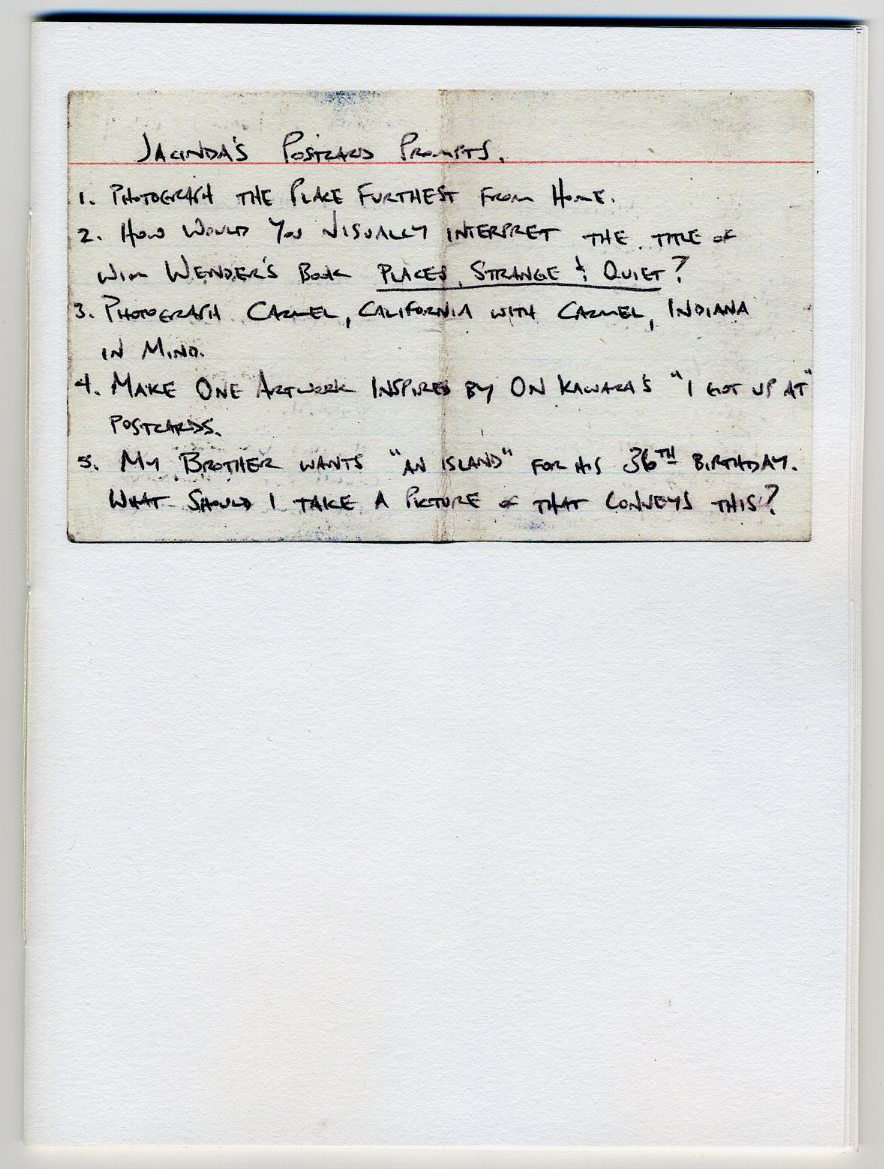 JACINDA'S POSTCARD PROMPTS.
1. PHOTOGRAPH THE PLACE FURTHEST FROM HOME.
2. HOW WOULD YOU VISUALLY INTERPRET THE TITLE OF
WIM WENDER'S BOOK PLACES, STRANGE & QUIET?
3. PHOTOGRAPH CARMEL, CALIFORNIA WITH CARMEL, INDIANA
IN MIND.
4. MAKE ONE ARTWORK INSPIRED BY ON KAWARA'S "I GOT UP AT"
POSTCARDS.
5. MY BROTHER WANTS "AN ISLAND" FOR HIS 36TH BIRTHDAY.
WHAT SHOULD I TAKE A PICTURE OF THAT CONVEYS THIS?